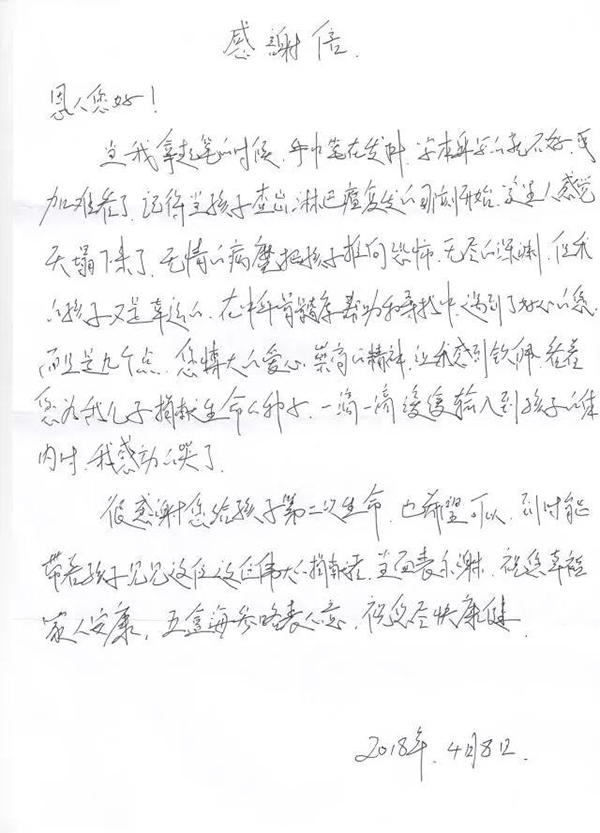 感謝信
恩人您好！
当我拿起笔的时候，手中笔在发抖，字本身写的就不好，更
加难看了，记得当孩子查出淋巴瘤复发的那刻开始，家里人感觉
天塌下来了，无情的病魔把孩子推向恐怖，无尽的深渊，但我
的孩子又是幸运的，在中华骨髓库帮助和寻找中，遇到了好心的您，
而且是九个点，您博大的爱心，崇高的精神，让我感到钦佩，看着
您为我儿子捐献生命的种子，一滴一滴缓缓输入到孩子的体
内时，我感动的哭了。
很感谢您给孩子第二次生命，也希望可以，到时能
带着孩子见见这位这位伟大的捐献者，当面表示谢，祝您幸福
家人安康，五盒海参略表心意，祝您尽快康健
2018年，4月8日，